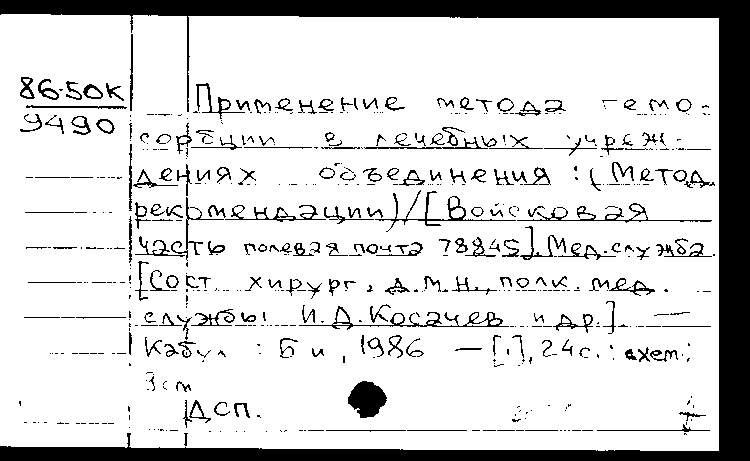 86-50К
9490
Применение метода гемо-
сорбции в лечебных учреж-
дениях объединения : (Метод.
рекомендации)/[Войсковая
часть полевая почта 78845]. Мед. служба.
[Сост. хирург, д.м.н., полк. мед.
службы И.Д. Косачев и др.]. —
Кабул : Б и, 1986 — [1], 24 с. : схем ;
см
ДСП.